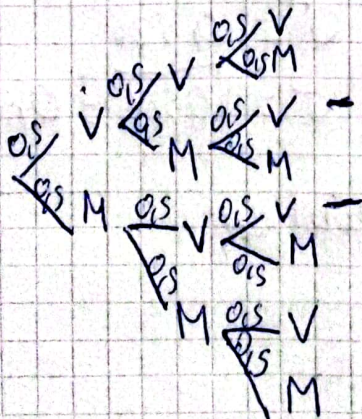 0,5 V
0,5 V 0,5 M
0,5 V 0,5 V –
0,5 0,5 M 0,5 M
0,5 M 0,5 V 0,5 V –
0,5 0,5 M
M 0,5 V
0,5
M